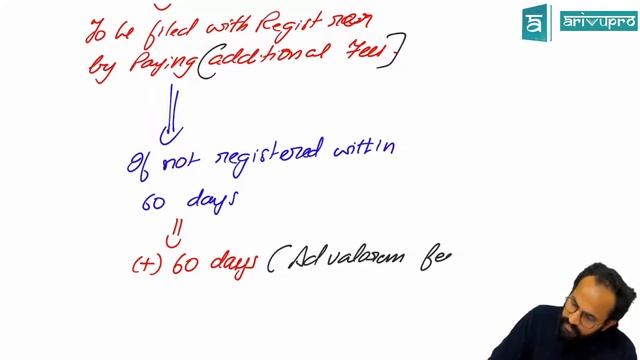 arivupro
To be filed with Registrar
by Paying (additional Fees)
If not registered within
60 days
(+) 60 days (Advalarem fee